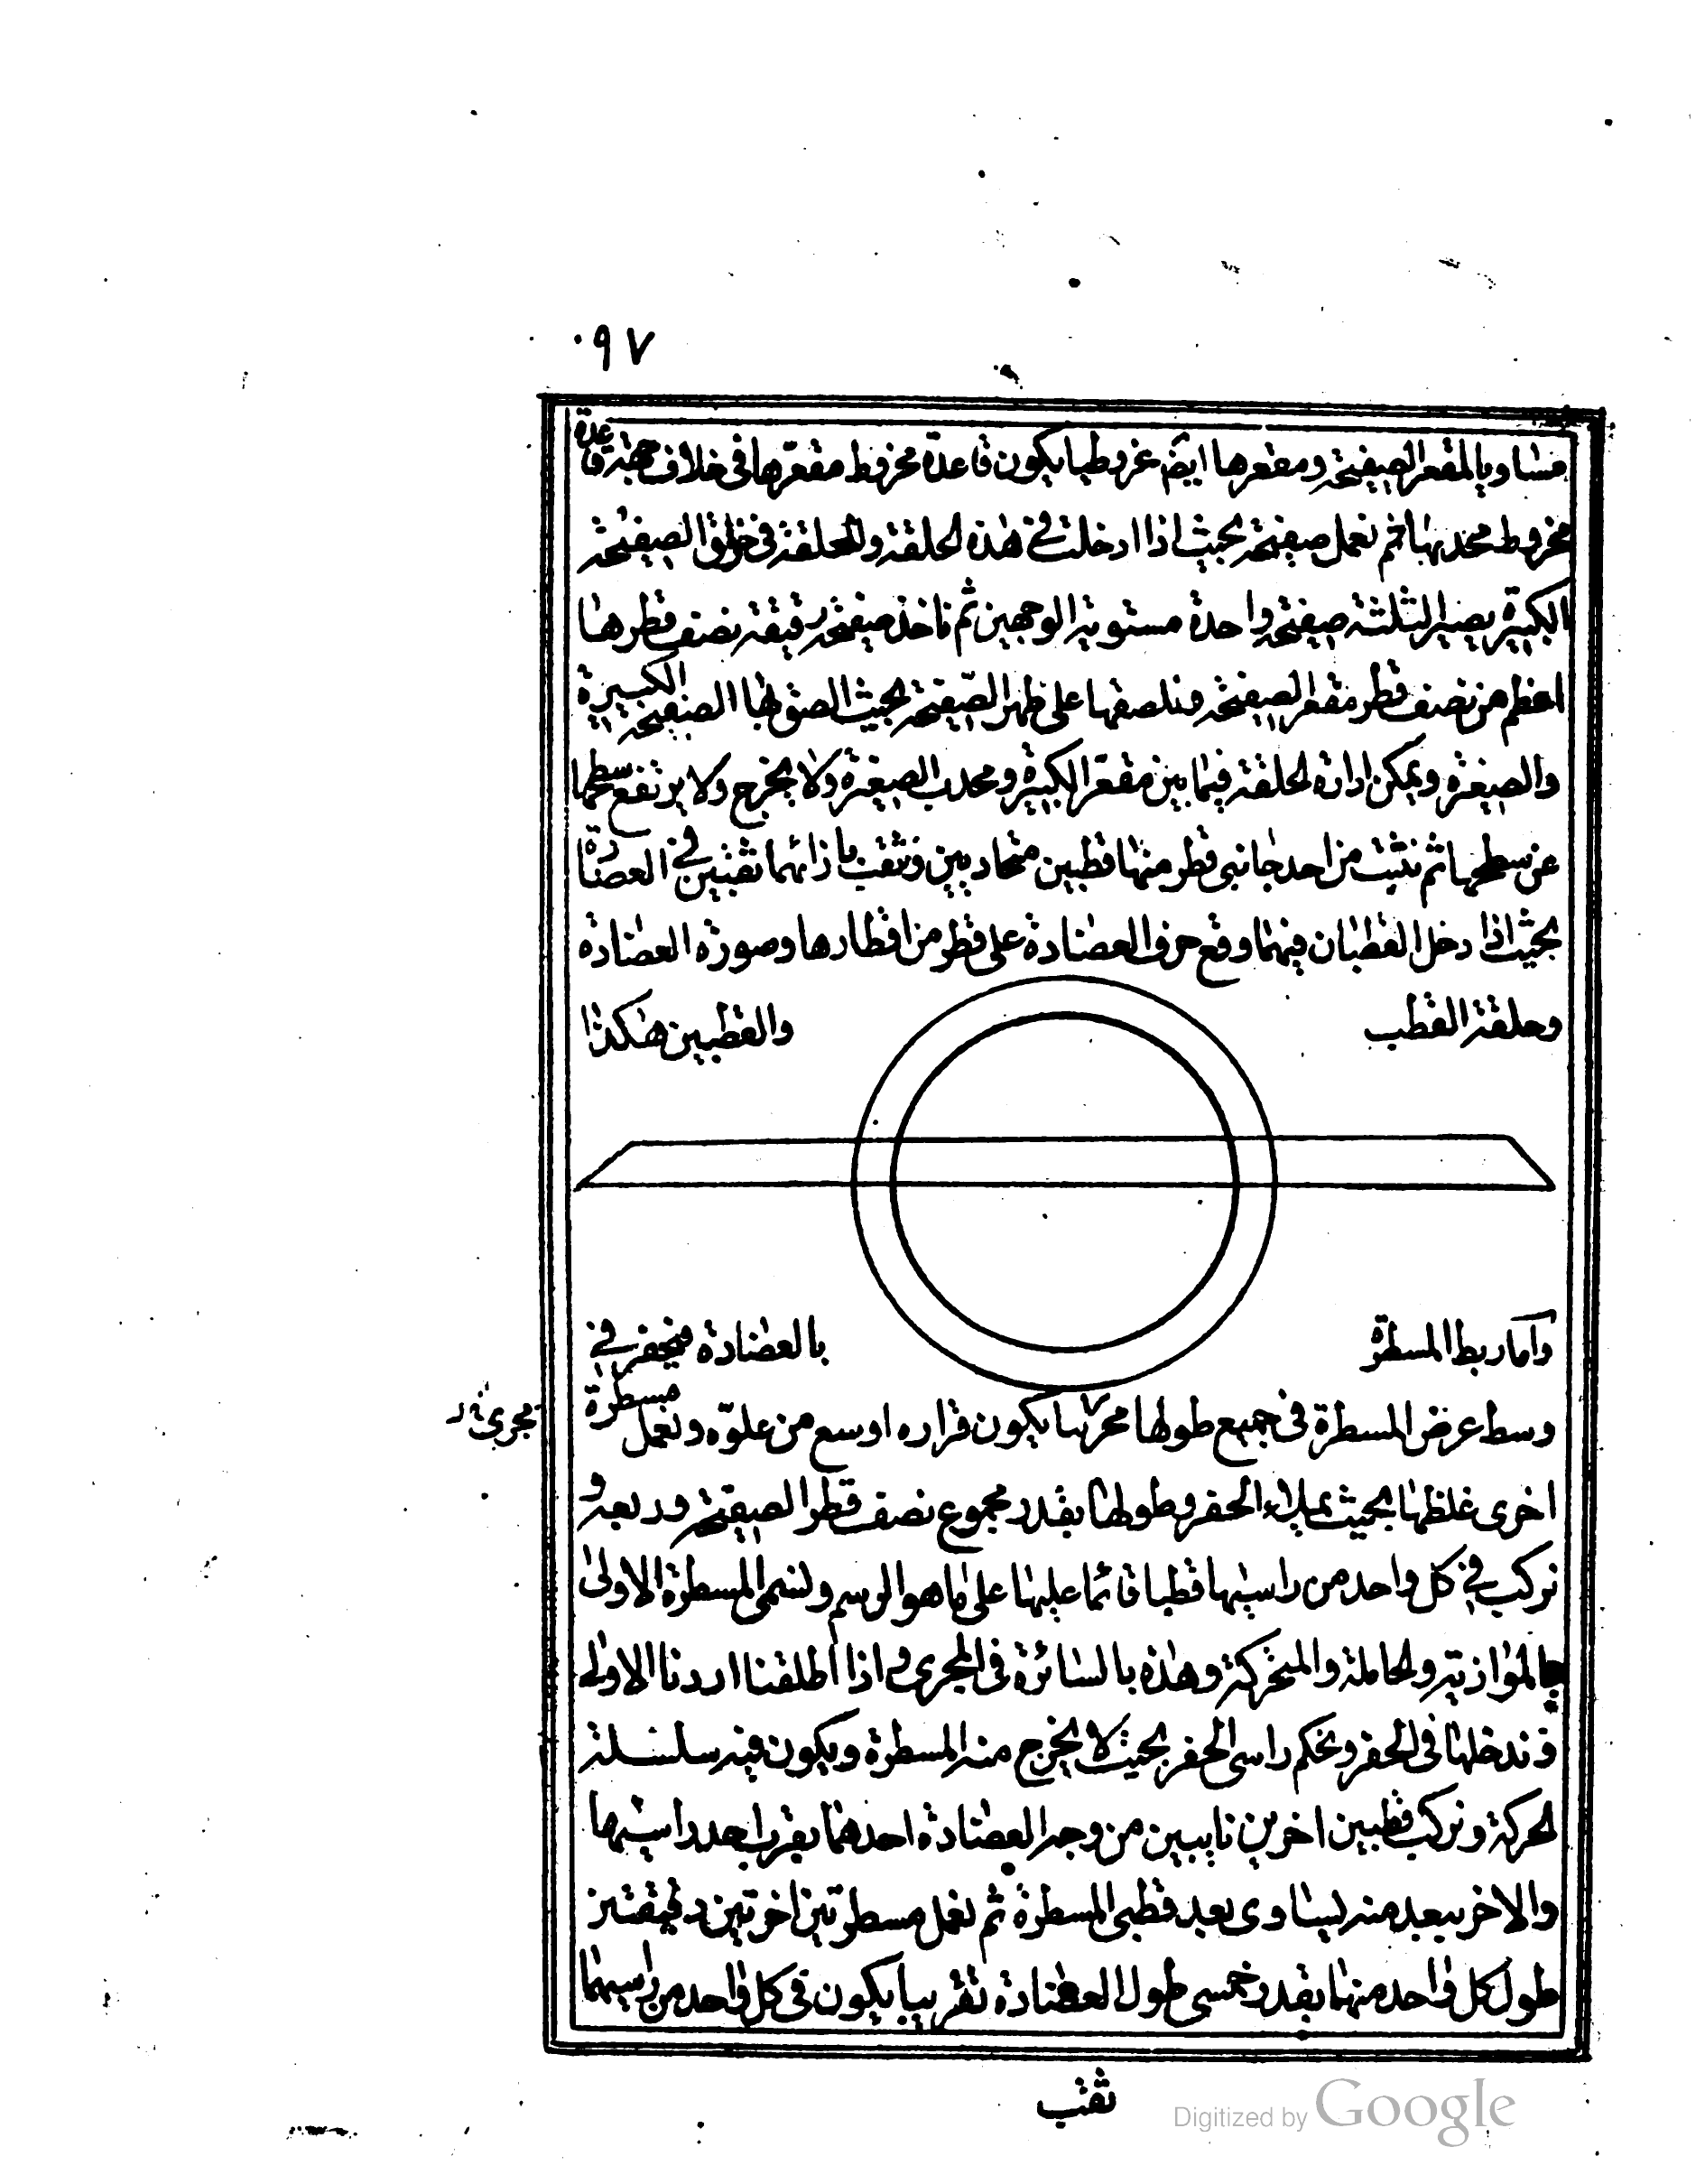 ٠٩٧
مساويا لمقعر الصفيحة ومقعرها ايضا مخروطيا يكون قاعدة مخروط مقعرها في خلاف جهة قاعدة
مخروط محدبها ثم نعمل صفيحة بحيث اذا ادخلت في هذه الحلقة والحلقة في الصفيحة
الكبيرة يصير الثلثة صفيحة واحدة مستوية الوجهين ثم ناخذ صفيحة رقيقة نصف قطرها
اعظم من نصف قطر مقعر الصفيحة ونلصقها على ظهر الصفيحة بحيث الصق بها الصفيحة الكبيرة
والصغيرة ويمكن ادارة الحلقة فيما بين مقعر الكبيرة ومحدب الصغيرة ولا يخرج ولا يرتفع سطحها
عن سطحها ثم نثبت من احد جانبي قطر منها قطبين متحاديين ونثقب بازائهما ثقبتين في العضادة
بحيث اذا دخل القطبان فيهما وقع حرف العضادة على قطر من اقطارها وصورة العضادة
وحلقة القطب والقطبين هكذا
واما ربط المسطرة بالعضادة فيحفر في
وسط عرض المسطرة في جميع طولها مجرى يكون قراره اوسع من علوه ونعمل مسطرة
مجرى
اخرى غلظها بحيث يملاء الحفر وطولها بقدر مجموع نصف قطر الصفيحة وربعه و
نركب في كل واحد من راسيها قطبا قائما عليها على ما هو الرسم ولنسمى المسطرة الاولى
بالموازية والحاملة والمتحركة وهذه بالسائرة في المجرى واذا اطلقنا اردنا الاولى
وندخلها في الحفر ونحكم راسى الحفر بحيث لا يخرج منه المسطرة ويكون فيه سلسلة
الحركة ونركب قطبين اخرين نابيين من وجه العضادة احدهما بقرب احد راسيها
والاخر ببعد منه يساوى بعد قطبى المسطرة ثم نعمل مسطرتين اخرتين دقيقتين
طول كل واحد منهما بقدر خمسى طول العضادة تقريبا يكون في كل واحد من راسيهما
ثقب
Digitized by Google